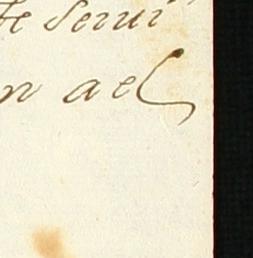 te serui
n ael